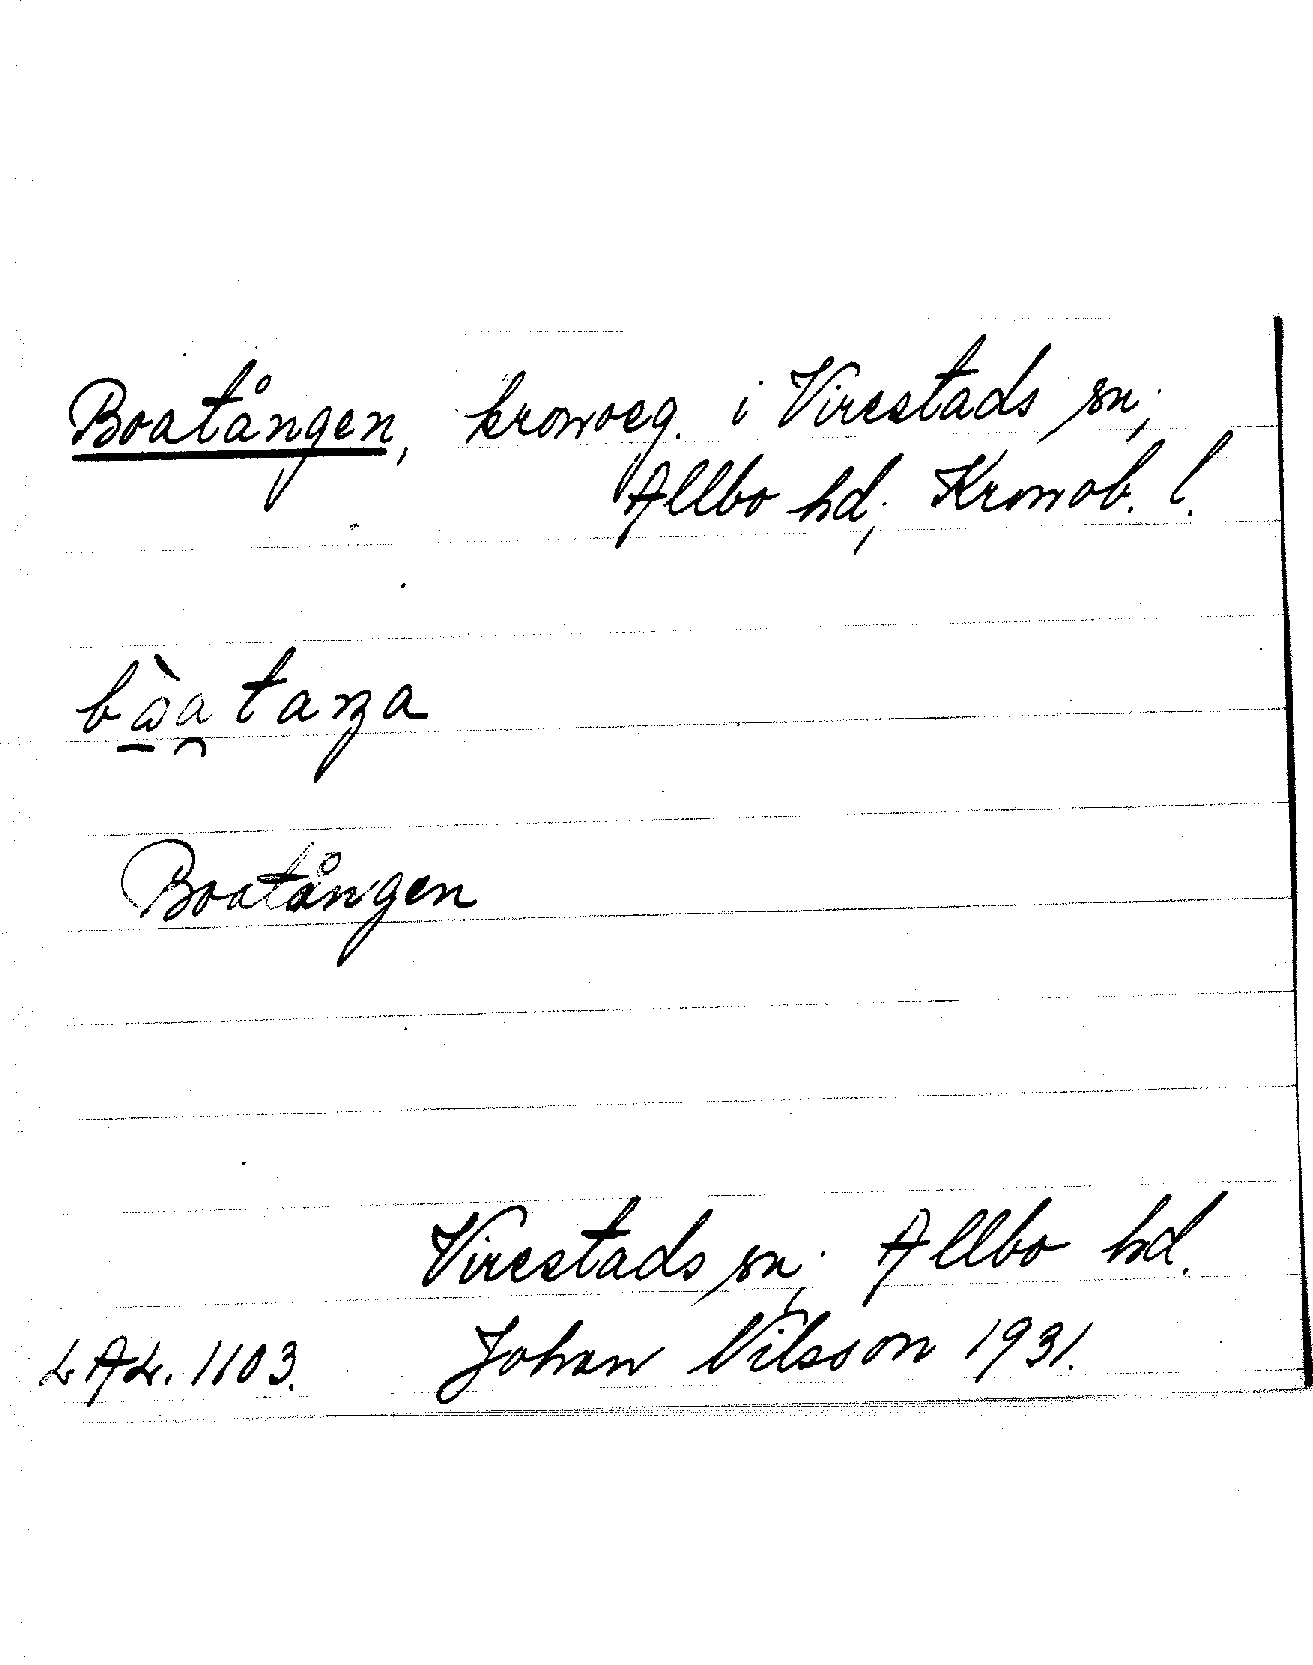 Boatången, kronoeg. i Virestads sn;
Allbo hd; Kronob. l.
Boatången
Virestads sn; Allbo hd.
LAL. 1103. Johan Nilsson 1931.